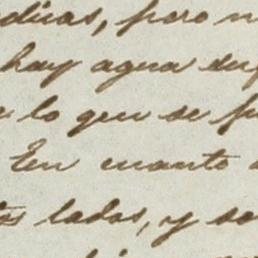 dias, pero n
hay agua su
lo que se p
En cuanto a
tos lados, y so